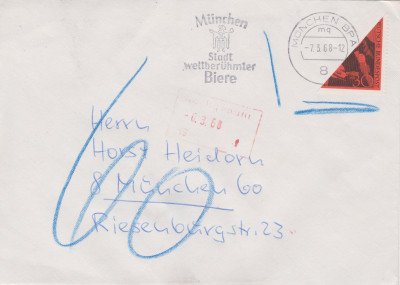 München
Stadt
weltberühmter
Biere
MÜNCHEN BPA
mq
-7.5.68-12
8
30
-6.5.68
Herrn
Horst Heidorn
8 München 60
Riesenburgstr. 23
60